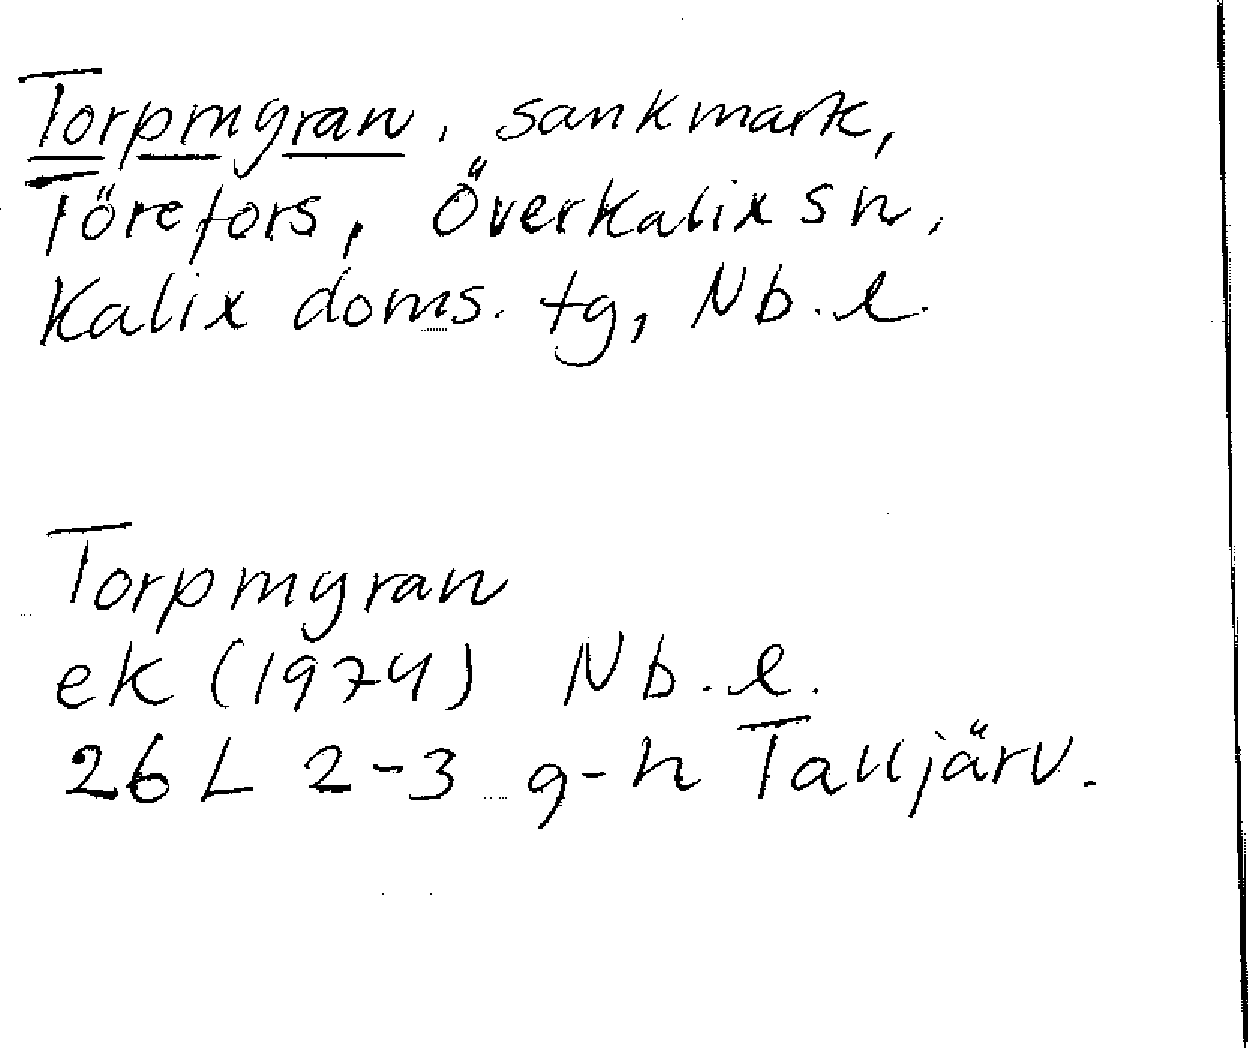 Torpmyran, sankmark,
Törefors, Överkalix sn,
Kalix doms. tg, Nb. l.
Torpmyran
ek (1974) Nb. l.
26 L 2-3 g-h Talljärv.